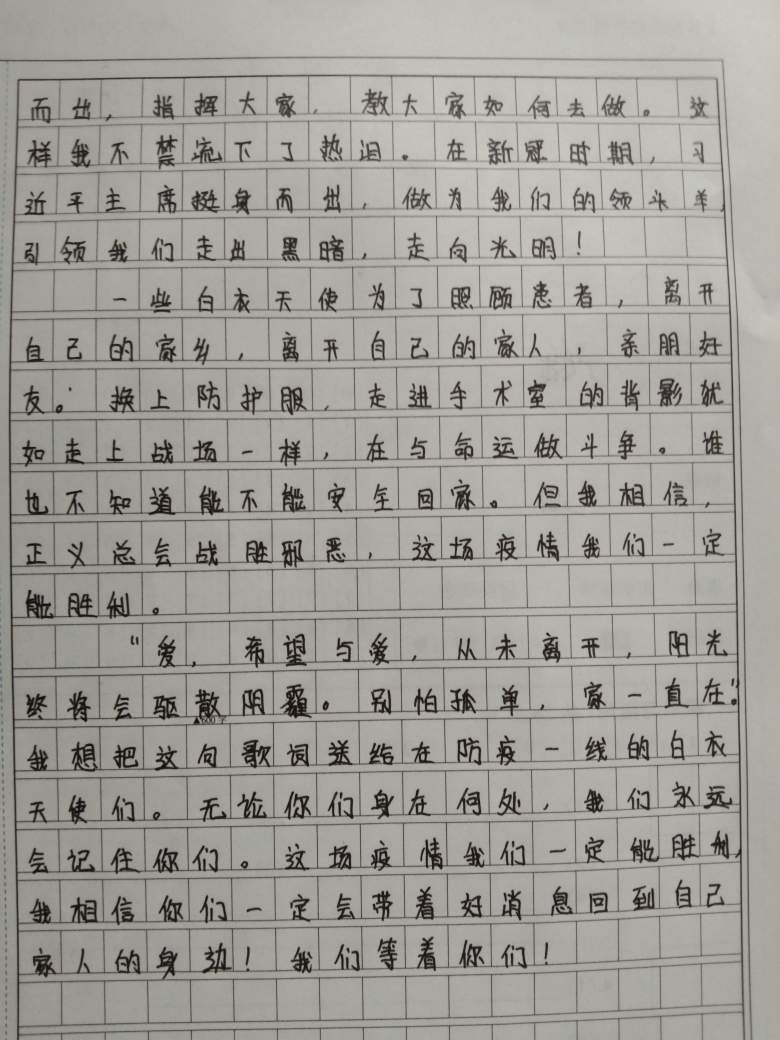 而出，指挥大家，教大家如何去做。这
样我不禁流下了热泪。在新冠时期，习
近平主席挺身而出，做为我们的领头羊，
引领我们走出黑暗，走向光明！
一些白衣天使为了照顾患者，离开
自己的家乡，离开自己的家人，亲朋好
友。换上防护服，走进手术室的背影犹
如走上战场一样，在与命运做斗争。谁
也不知道能不能安全回家。但我相信，
正义总会战胜邪恶，这场疫情我们一定
能胜利。
“爱，希望与爱，从未离开，阳光
终将会驱散阴霾。别怕孤单，家一直在。”
▲600字
我想把这句歌词送给在防疫一线的白衣
天使们。无论你们身在何处，我们永远
会记住你们。这场疫情我们一定能胜利，
我相信你们一定会带着好消息回到自己
家人的身边！我们等着你们！